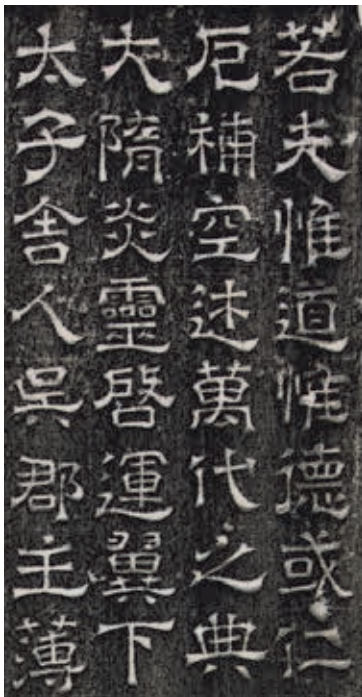 若夫惟道惟德或仁
厄補空述萬代之典
大隋炎靈啓運翼下
太子舍人吳郡主薄